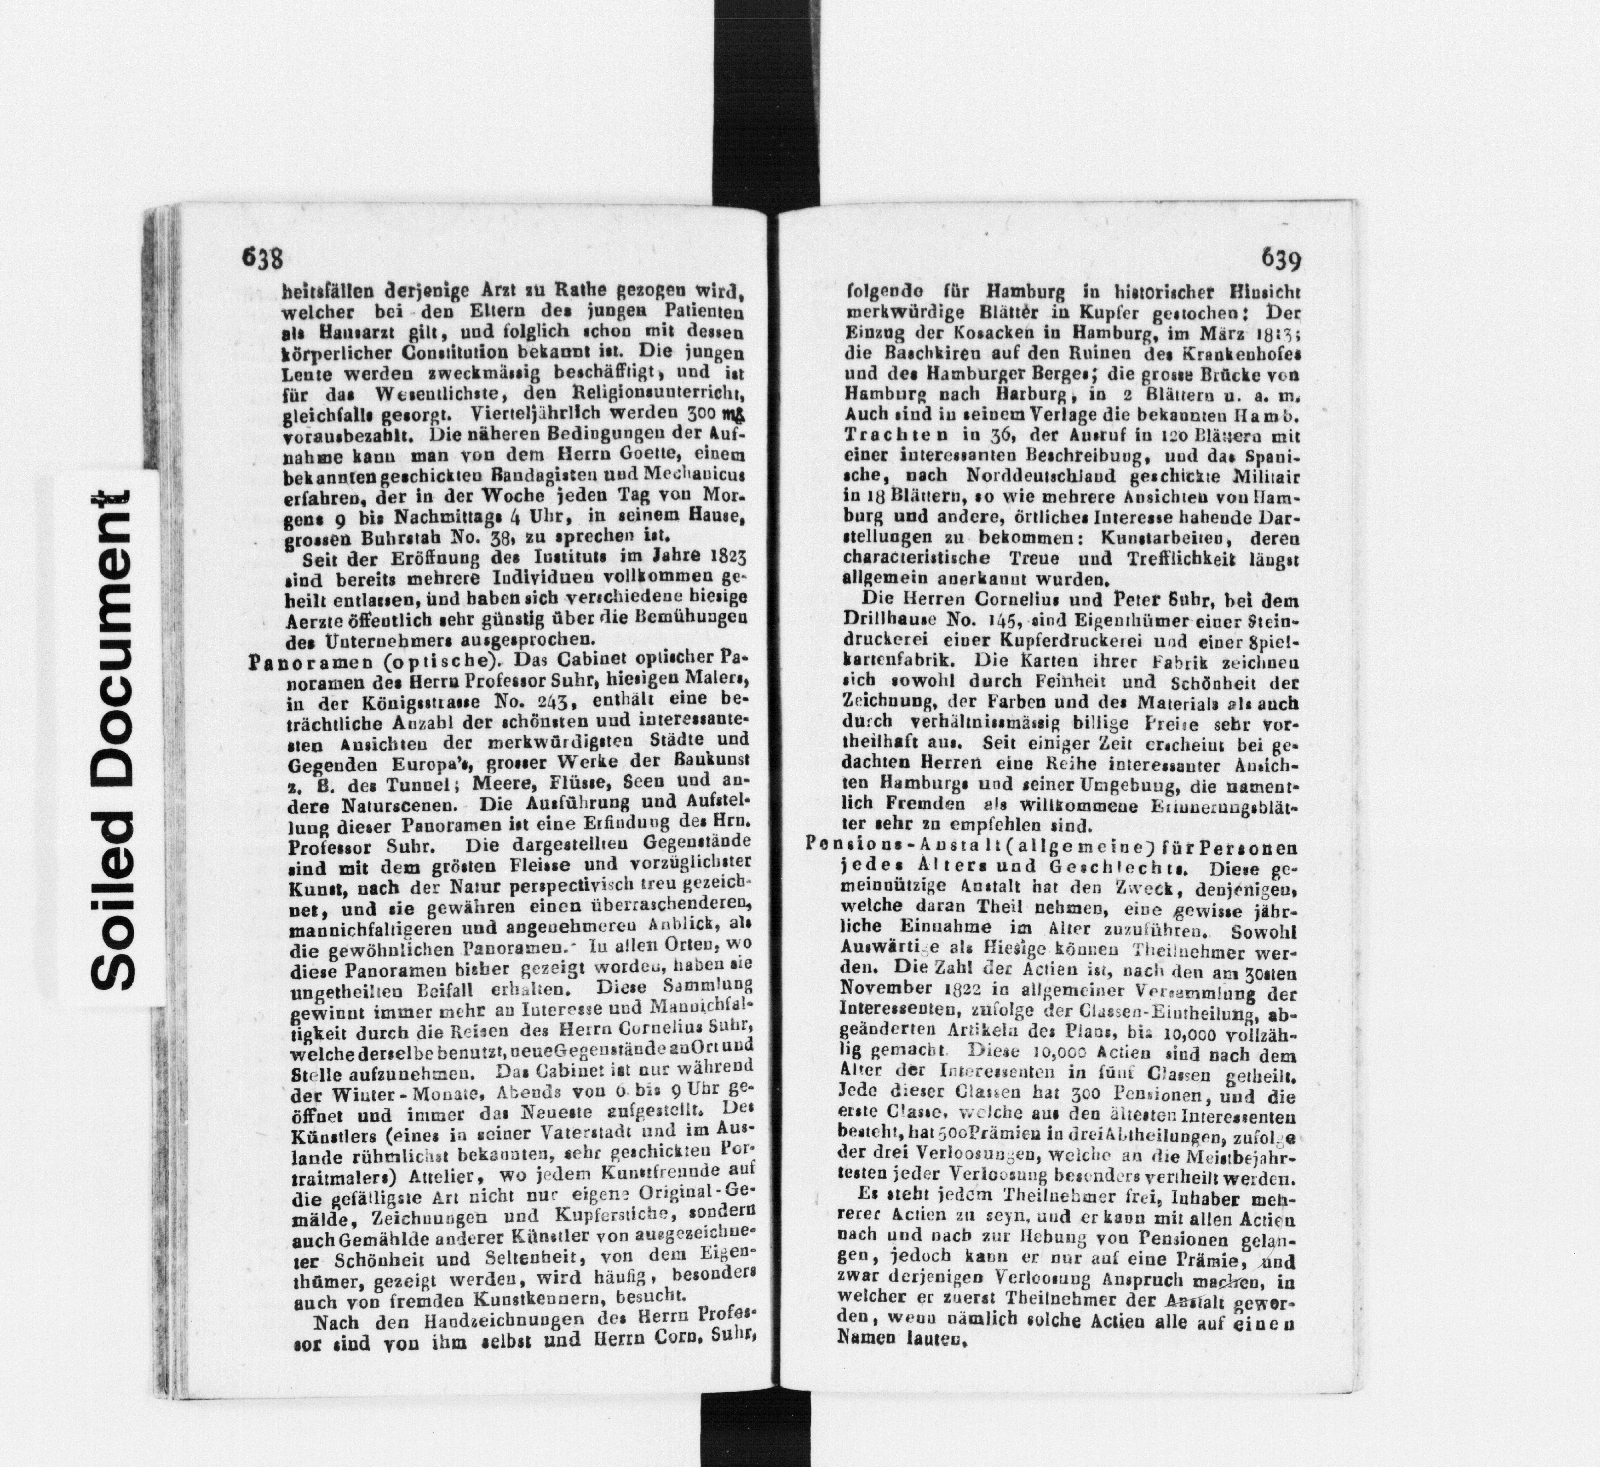 Soiled Document
638
heitsfällen derjenige Arzt zu Rathe gezogen wird,
welcher bei den Eltern des jungen Patienten
als Hausarzt gilt, und folglich schon mit dessen
körperlicher Constitution bekannt ist. Die jungen
Leute werden zweckmässig beschäfftigt, und ist
für das Wesentlichste, den Religionsunterricht,
gleichfalls gesorgt. Vierteljährlich werden 300 m&
vorausbezahlt. Die näheren Bedingungen der Auf-
nahme kann man von dem Herrn Goette, einem
bekannten geschickten Bandagisten und Mechanicus
erfahren, der in der Woche jeden Tag von Mor-
gens 9 bis Nachmittags 4 Uhr, in seinem Hause,
grossen Buhrstah No. 38, zu sprechen ist.
Seit der Eröffnung des Instituts im Jahre 1823
sind bereits mehrere Individuen vollkommen ge-
heilt entlassen, und haben sich verschiedene hiesige
Aerzte öffentlich sehr günstig über die Bemühungen
des Unternehmers ausgesprochen.
Panoramen (optische). Das Cabinet optischer Pa-
noramen des Herrn Professor Suhr, hiesigen Malers,
in der Königsstrasse No. 243, enthält eine be-
trächtliche Anzahl der schönsten und interessante-
sten Ansichten der merkwürdigsten Städte und
Gegenden Europa's, grosser Werke der Baukunst
z. B. des Tunnel; Meere, Flüsse, Seen und an-
dere Naturscenen. Die Ausführung und Aufstel-
lung dieser Panoramen ist eine Erfindung des Hrn.
Professor Suhr. Die dargestellten Gegenstände
sind mit dem grösten Fleisse und vorzüglichster
Kunst, nach der Natur perspectivisch treu gezeich-
net, und sie gewähren einen überraschenderen,
mannichfaltigeren und angenehmeren Anblick, als
die gewöhnlichen Panoramen. In allen Orten, wo
diese Panoramen bisher gezeigt worden, haben sie
ungetheilten Beifall erhalten. Diese Sammlung
gewinnt immer mehr an Interesse und Mannichfal-
tigkeit durch die Reisen des Herrn Cornelius Suhr,
welche derselbe benutzt, neue Gegenstände an Ort und
Stelle aufzunehmen. Das Cabinet ist nur während
der Winter-Monate, Abends von 6 bis 9 Uhr ge-
öffnet und immer das Neueste aufgestellt. Des
Künstlers (eines in seiner Vaterstadt und im Aus-
lande rühmlichst bekannten, sehr geschickten Por-
traitmalers) Attelier, wo jedem Kunstfreunde auf
die gefälligste Art nicht nur eigene Original-Ge-
mälde, Zeichnungen und Kupferstiche, sondern
auch Gemählde anderer Künstler von ausgezeichne-
ter Schönheit und Seltenheit, von dem Eigen-
thümer, gezeigt werden, wird häufig, besonders
auch von fremden Kunstkennern, besucht.
Nach den Handzeichnungen des Herrn Profes-
sor sind von ihm selbst und Herrn Corn. Suhr,
639
folgende für Hamburg in historischer Hinsicht
merkwürdige Blätter in Kupfer gestochen: Der
Einzug der Kosacken in Hamburg, im März 1813;
die Baschkiren auf den Ruinen des Krankenhofes
und des Hamburger Berges; die grosse Brücke von
Hamburg nach Harburg, in 2 Blättern u. a. m.
Auch sind in seinem Verlage die bekannten Hamb.
Trachten in 36, der Ausruf in 120 Blättern mit
einer interessanten Beschreibung, und das Spani-
sche, nach Norddeutschland geschickte Militair
in 18 Blättern, so wie mehrere Ansichten von Ham-
burg und andere, örtliches Interesse habende Dar-
stellungen zu bekommen: Kunstarbeiten, deren
characteristische Treue und Trefflichkeit längst
allgemein anerkannt wurden.
Die Herren Cornelius und Peter Suhr, bei dem
Drillhause No. 145, sind Eigenthümer einer Stein-
druckerei einer Kupferdruckerei und einer Spiel-
kartenfabrik. Die Karten ihrer Fabrik zeichnen
sich sowohl durch Feinheit und Schönheit der
Zeichnung, der Farben und des Materials als auch
durch verhältnissmässig billige Preise sehr vor-
theilhaft aus. Seit einiger Zeit erscheint bei ge-
dachten Herren eine Reihe interessanter Ansich-
ten Hamburgs und seiner Umgebung, die nament-
lich Fremden als willkommene Erinnerungsblät-
ter sehr zu empfehlen sind.
Pensions-Anstalt (allgemeine) für Personen
jedes Alters und Geschlechts. Diese ge-
meinnützige Anstalt hat den Zweck, denjenigen,
welche daran Theil nehmen, eine gewisse jähr-
liche Einnahme im Alter zuzuführen. Sowohl
Auswärtige als Hiesige können Theilnehmer wer-
den. Die Zahl der Actien ist, nach den am 30sten
November 1822 in allgemeiner Versammlung der
Interessenten, zufolge der Classen-Eintheilung, ab-
geänderten Artikeln des Plans, bis 10,000 vollzäh-
lig gemacht. Diese 10,000 Actien sind nach dem
Alter der Interessenten in fünf Classen getheilt.
Jede dieser Classen hat 300 Pensionen, und die
erste Classe, welche aus den ältesten Interessenten
besteht, hat 500 Prämien in drei Abtheilungen, zufolge
der drei Verloosungen, welche an die Meistbejahr-
testen jeder Verloosung besonders vertheilt werden.
Es steht jedem Theilnehmer frei, Inhaber meh-
rerer Actien zu seyn, und er kann mit allen Actien
nach und nach zur Hebung von Pensionen gelan-
gen, jedoch kann er nur auf eine Prämie, und
zwar derjenigen Verloosung Anspruch machen, in
welcher er zuerst Theilnehmer der Anstalt gewor-
den, wenn nämlich solche Actien alle auf einen
Namen lauten.